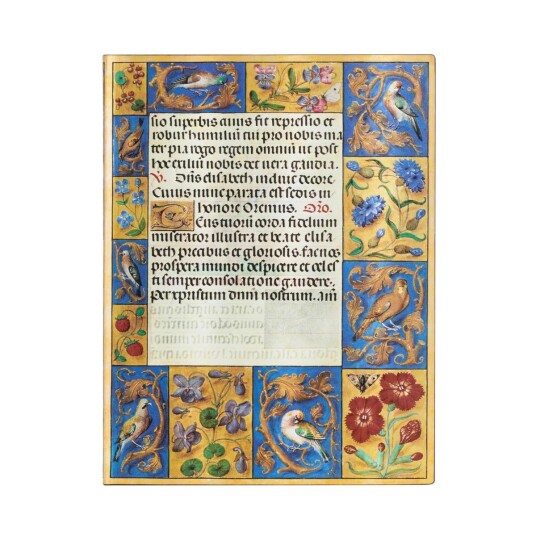 sio superbis auus fit repressio et
robur humiliũ tui pro nobis ma
ter pia rogo regem omniũ ut post
hoc exiliũ nobis det uera gaudia.
V. Dñs elisabeth induit decore
Cuius nunc parata est sedis in
honore Oremus. Oro.
Deus tuori corda fidelium
miserator illustra et beate elisa
beth precibus et gloriosis fac nos
prospera mundi despicere et celes
ti semper consolatione gaudere.
Per xpistum dnm nostrum. am